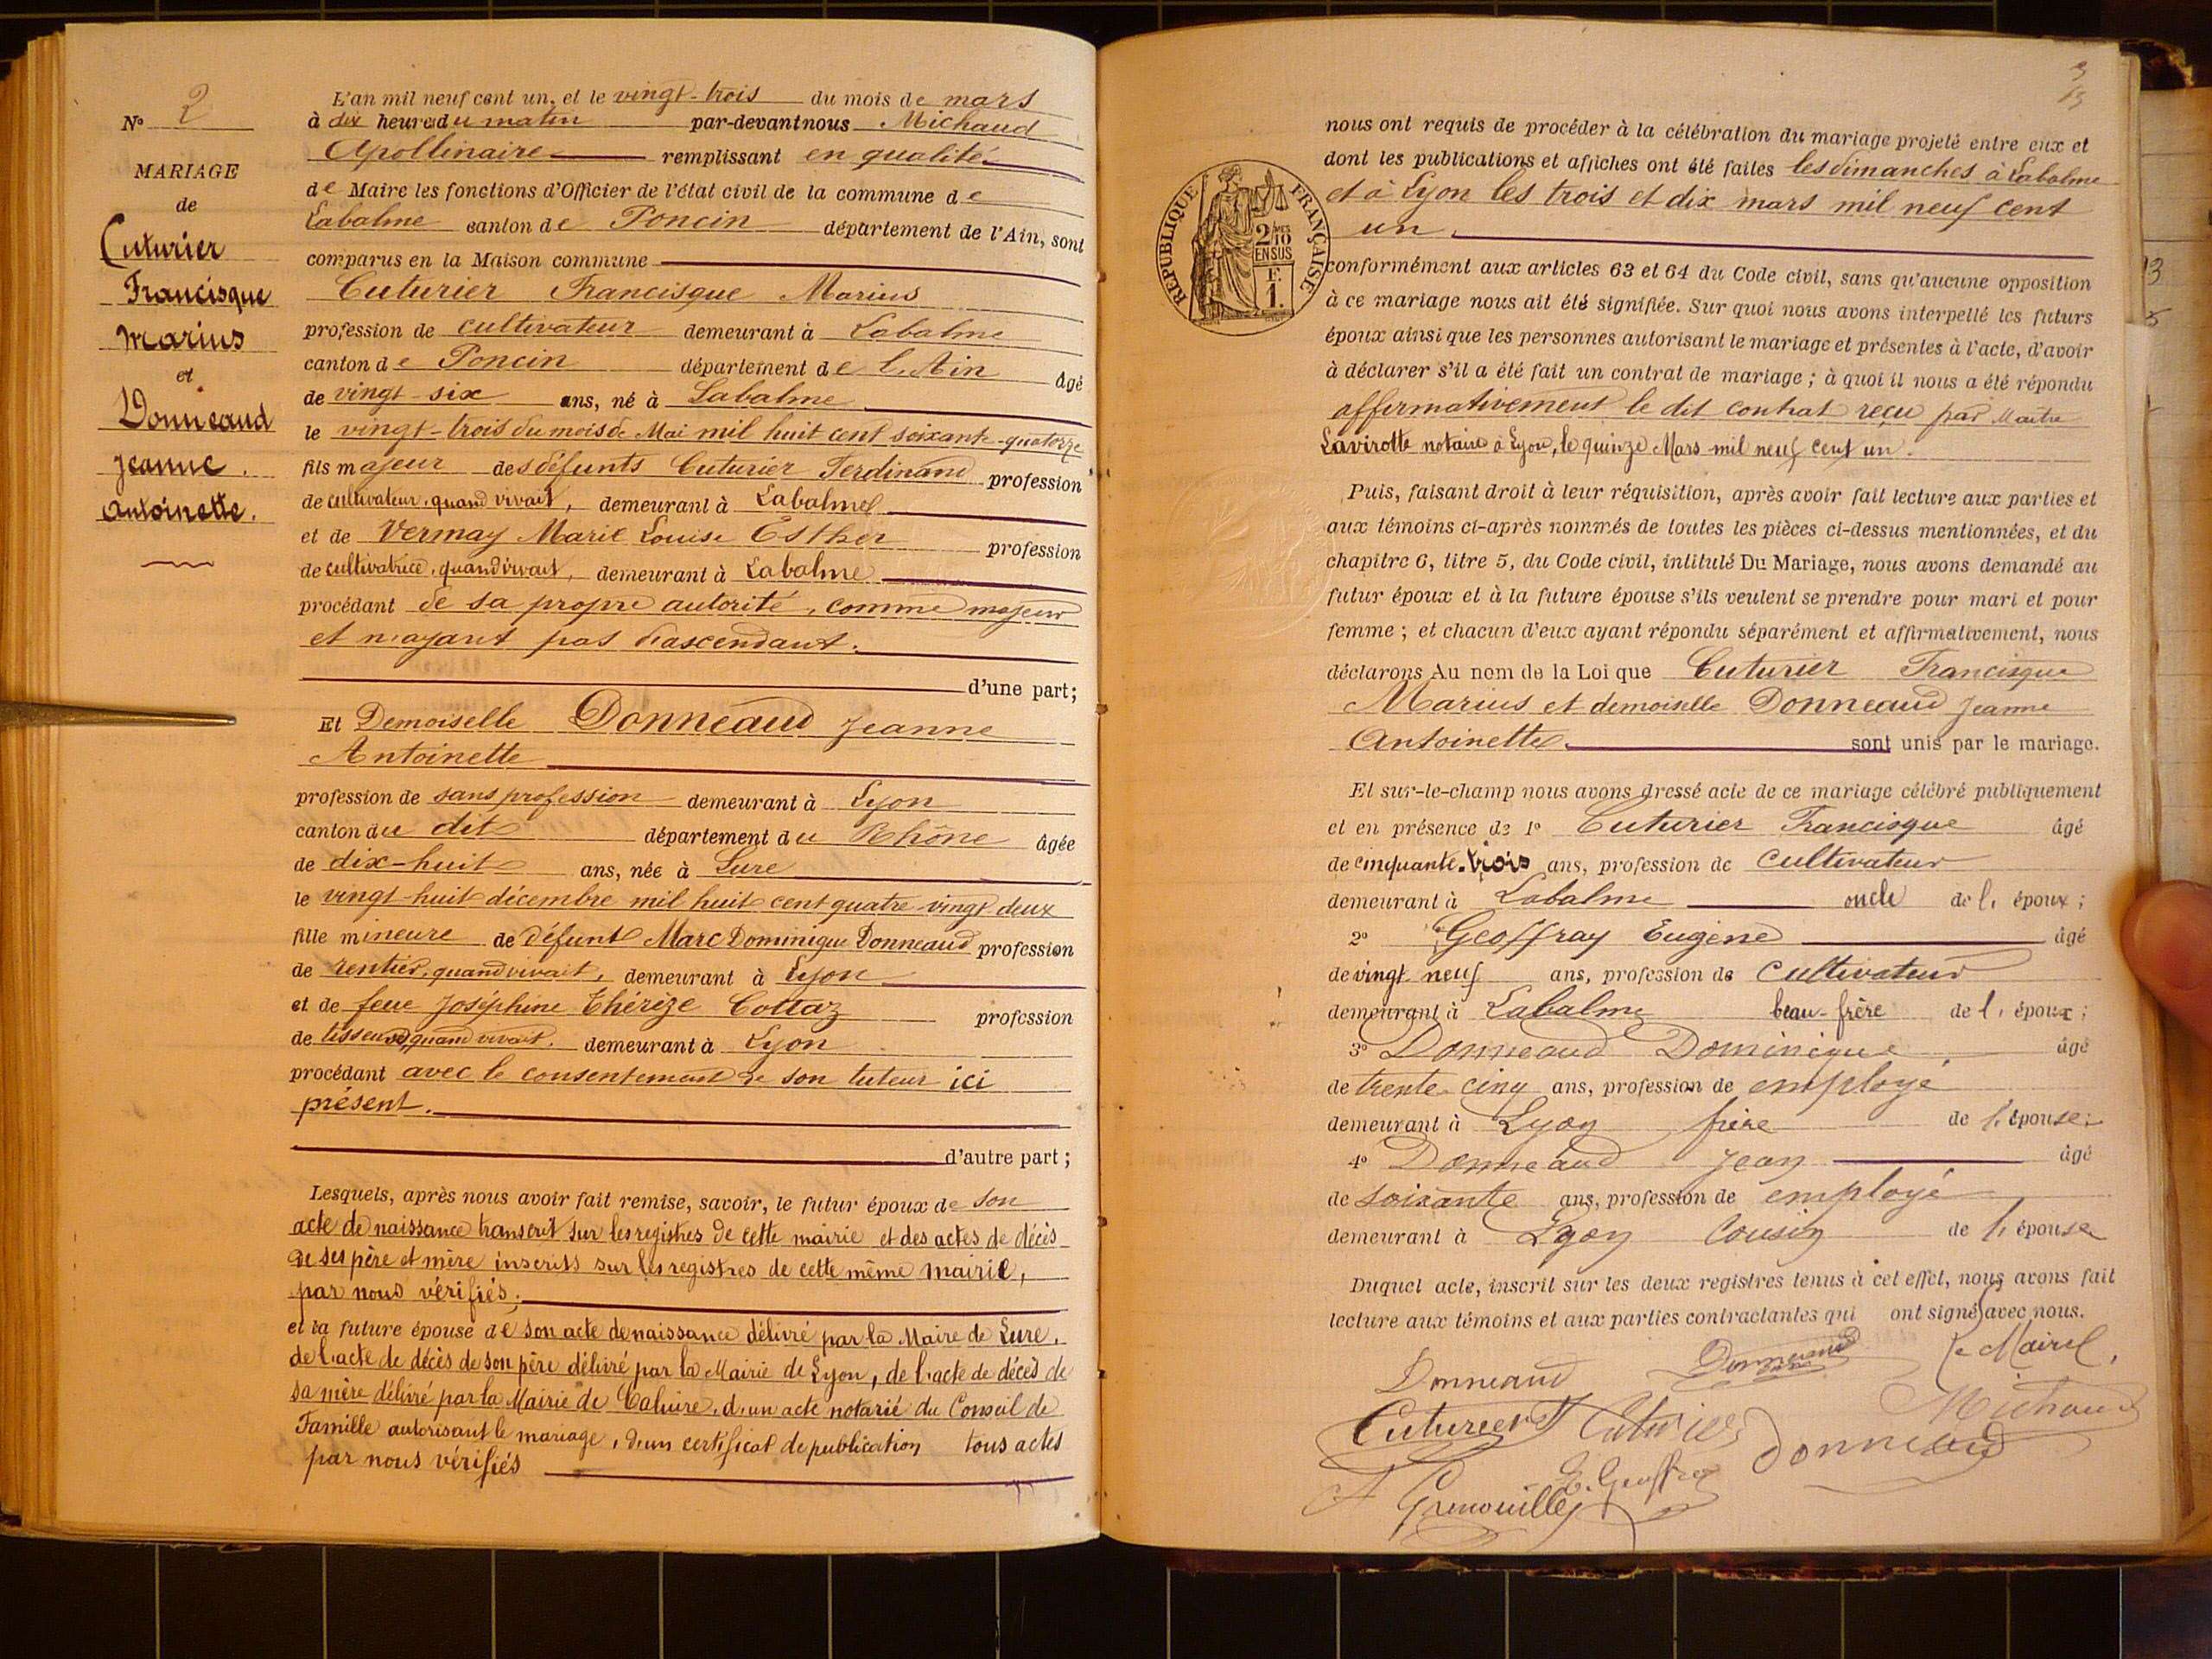 N° 2
MARIAGE
de
Cuturier
Francisque
Marius
et
Donneaud
Jeanne.
Antoinette.
L'an mil neuf cent un, et le vingt-trois du mois de mars
à dix heures du matin par-devant nous Michaud
Apollinaire remplissant en qualité
de Maire les fonctions d'Officier de l'état civil de la commune de
Labalme canton de Poncin département de l'Ain, sont
comparus en la Maison commune
Cuturier Francisque Marius
profession de cultivateur demeurant à Labalme
canton de Poncin département de l'Ain âgé
de vingt-six ans, né à Labalme
le vingt-trois du mois de Mai mil huit cent soixante-quatorze
fils majeur des défunts Cuturier Ferdinand profession
de cultivateur, quand vivait, demeurant à Labalme
et de Vermay Marie Louise Esther profession
de cultivatrice, quand vivait, demeurant à Labalme
procédant de sa propre autorité, comme majeur
et n'ayant pas d'ascendant.
d'une part;
Et Demoiselle Donneaud Jeanne
Antoinette
profession de sans profession demeurant à Lyon
canton du dit département du Rhône âgée
de dix-huit ans, née à Lure
le vingt-huit décembre mil huit cent quatre vingt deux
fille mineure de défunt Marc Dominique Donneaud profession
de rentier, quand vivait, demeurant à Lyon
et de feue Joséphine Thérèze Cottaz profession
de tisseuse, quand vivait, demeurant à Lyon
procédant avec le consentement de son tuteur ici
présent.
d'autre part;
Lesquels, après nous avoir fait remise, savoir, le futur époux de son
acte de naissance transcrit sur les registres de cette mairie et des actes de décès
de ses père et mère inscrits sur les registres de cette même mairie,
par nous vérifiés;
et la future épouse de son acte de naissance délivré par la Maire de Lure,
de l'acte de décès de son père délivré par la Mairie de Lyon, de l'acte de décès de
sa mère délivré par la Mairie de Caluire, d'un acte notarié du Conseil de
Famille autorisant le mariage, d'un certificat de publication tous actes
par nous vérifiés
3
13
nous ont requis de procéder à la célébration du mariage projeté entre eux et
dont les publications et affiches ont été faites les dimanches à Labalme
et à Lyon les trois et dix mars mil neuf cent
un.
RÉPUBLIQUE FRANÇAISE
2/10
EN SUS
F.
1.
conformément aux articles 63 et 64 du Code civil, sans qu'aucune opposition
à ce mariage nous ait été signifiée. Sur quoi nous avons interpellé les futurs
époux ainsi que les personnes autorisant le mariage et présentes à l'acte, d'avoir
à déclarer s'il a été fait un contrat de mariage; à quoi il nous a été répondu
affirmativement le dit contrat reçu par Maitre
Lavirotte notaire à Lyon, le quinze Mars mil neuf cent un.
Puis, faisant droit à leur réquisition, après avoir fait lecture aux parties et
aux témoins ci-après nommés de toutes les pièces ci-dessus mentionnées, et du
chapitre 6, titre 5, du Code civil, intitulé Du Mariage, nous avons demandé au
futur époux et à la future épouse s'ils veulent se prendre pour mari et pour
femme; et chacun d'eux ayant répondu séparément et affirmativement, nous
déclarons Au nom de la Loi que Cuturier Francisque
Marius et demoiselle Donneaud Jeanne
Antoinette sont unis par le mariage.
Et sur-le-champ nous avons dressé acte de ce mariage célébré publiquement
et en présence de 1° Cuturier Francisque âgé
de cinquante-trois ans, profession de cultivateur
demeurant à Labalme oncle de l'époux;
2° Geoffray Eugène âgé
de vingt neuf ans, profession de cultivateur
demeurant à Labalme beau-frère de l'époux;
3° Donneaud Dominique, âgé
de trente-cinq ans, profession de employé
demeurant à Lyon frère de l'épouse;
4° Donneaud Jean âgé
de soixante ans, profession de employé
demeurant à Lyon cousin de l'épouse
Duquel acte, inscrit sur les deux registres tenus à cet effet, nous avons fait
lecture aux témoins et aux parties contractantes qui ont signé avec nous.
Le Maire,
Donneaud Donneaud
Michaud
Cuturier F Cuturier Donneaud
E. Geoffray
Grenouillet
13